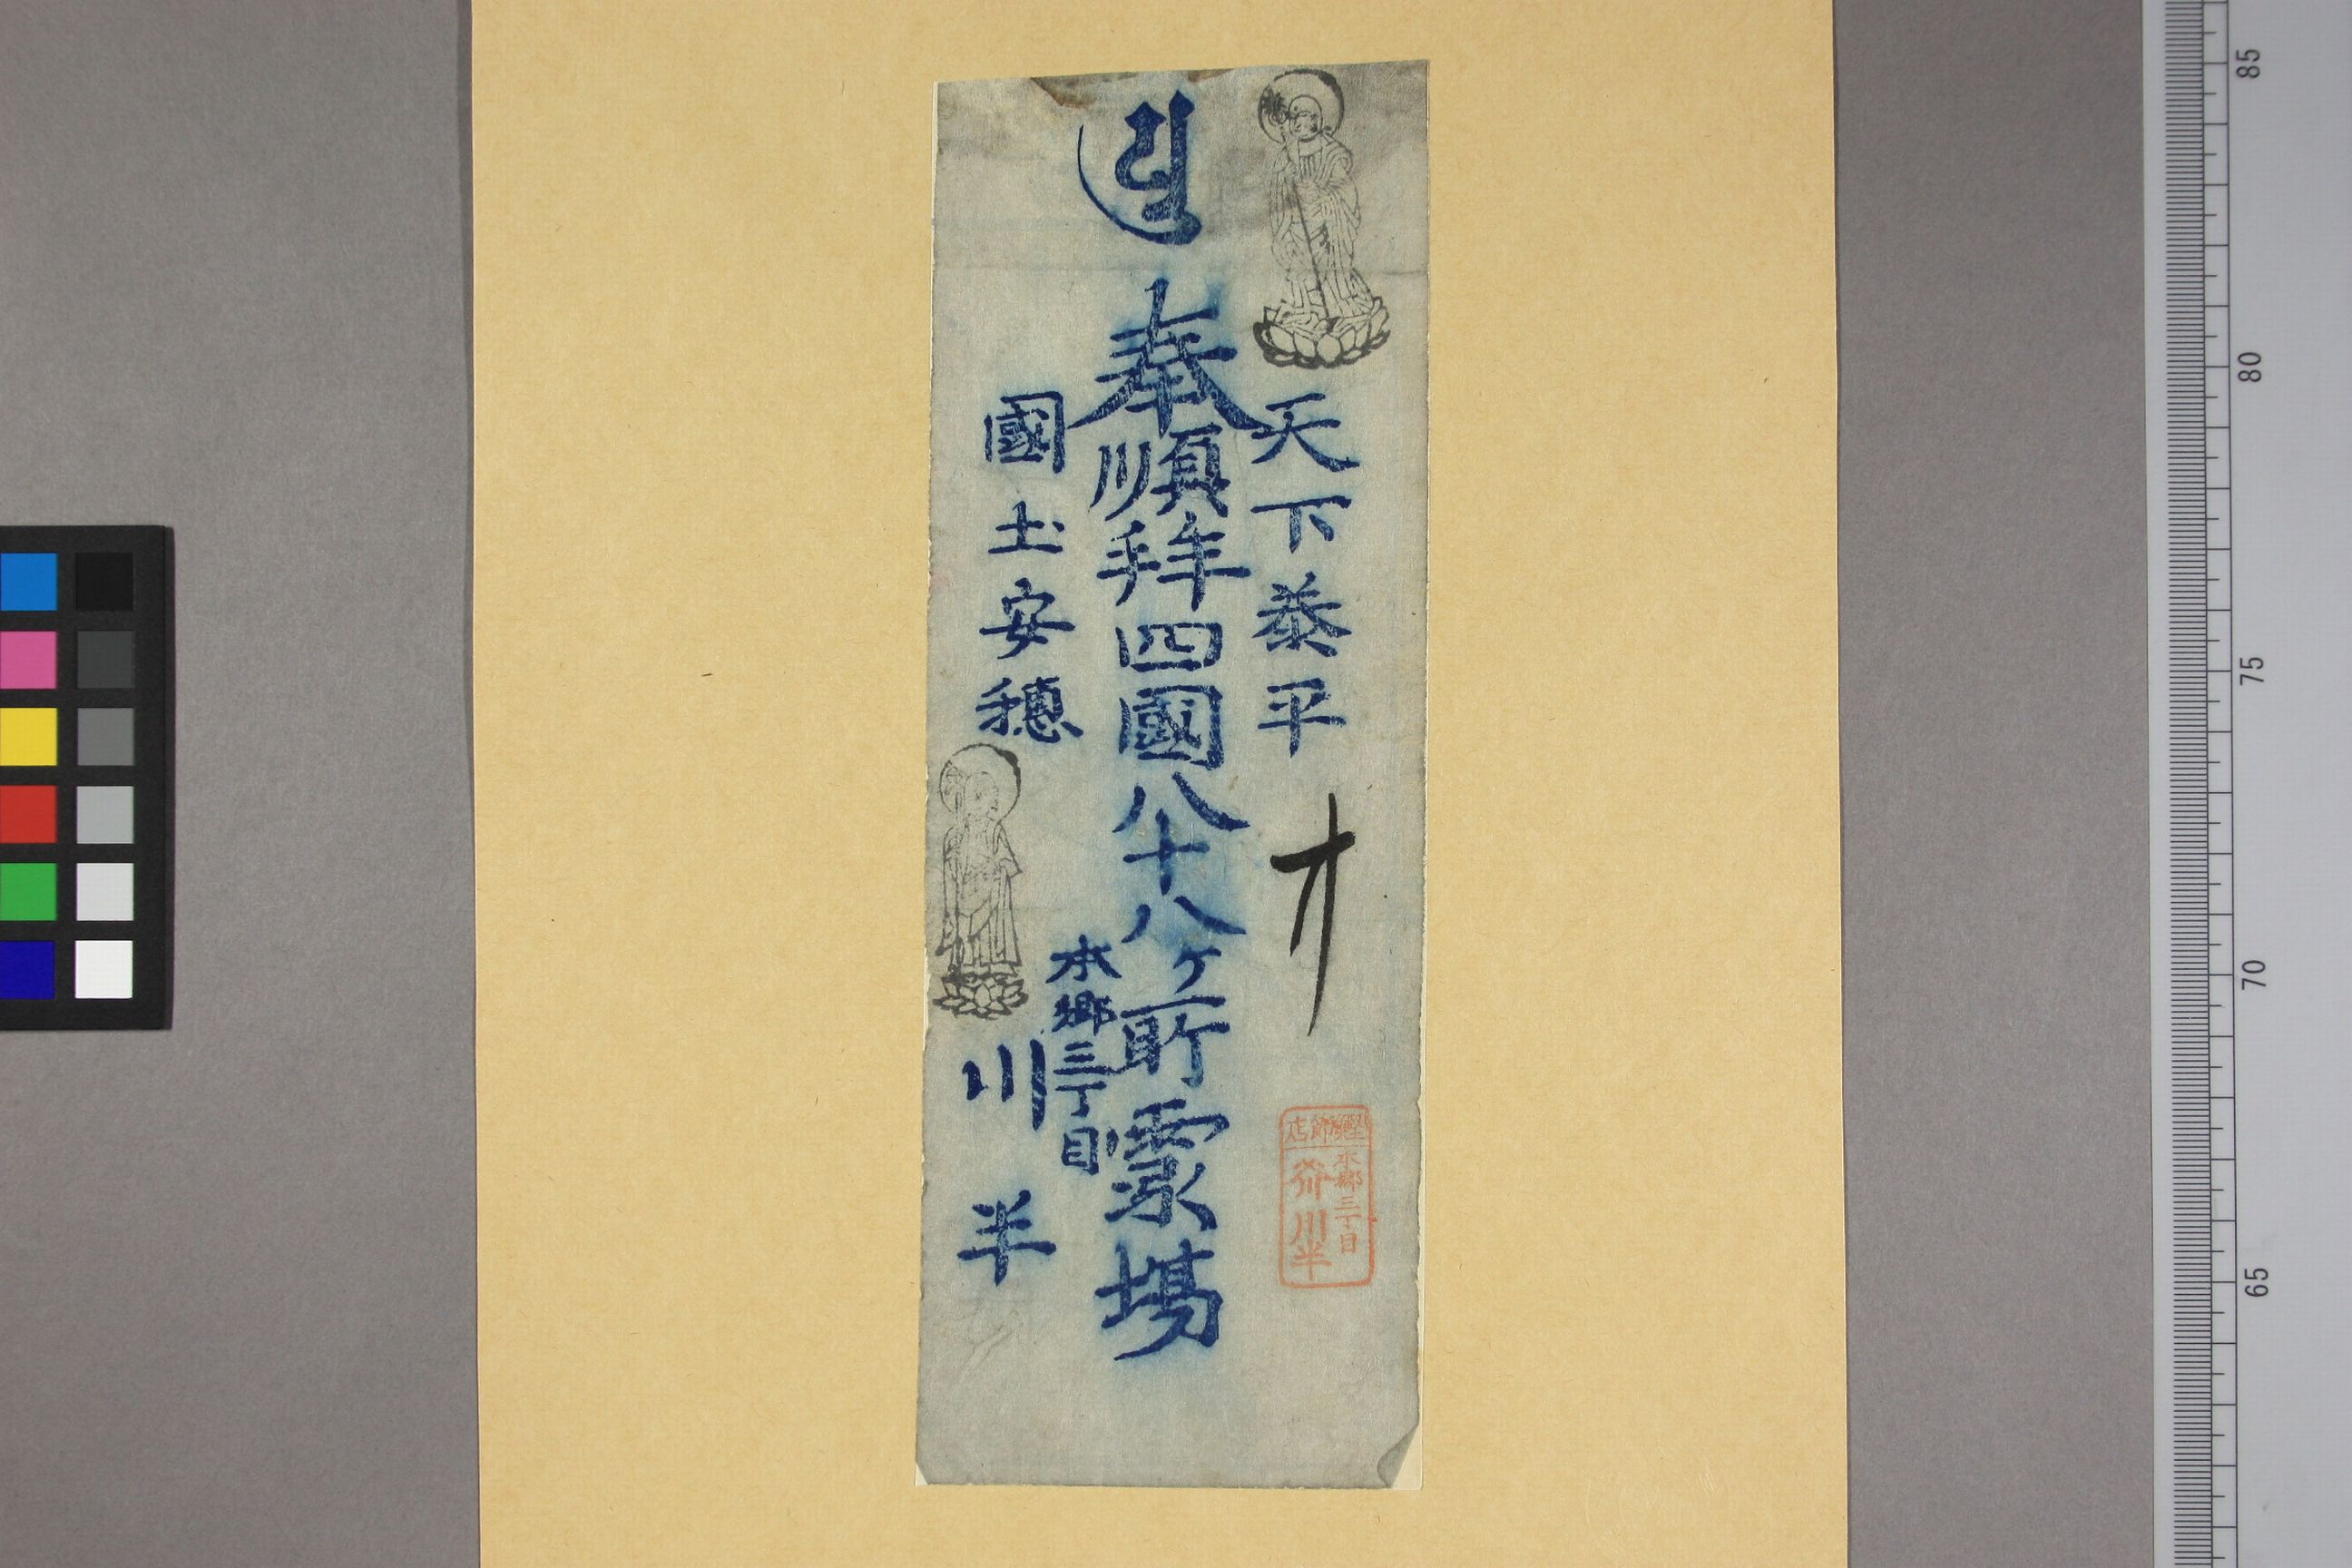 天下泰平
奉順拜四國八十八ヶ所霊場
國土安穏
本郷三丁目
川半
本郷三丁目
川半
85
80
75
70
65